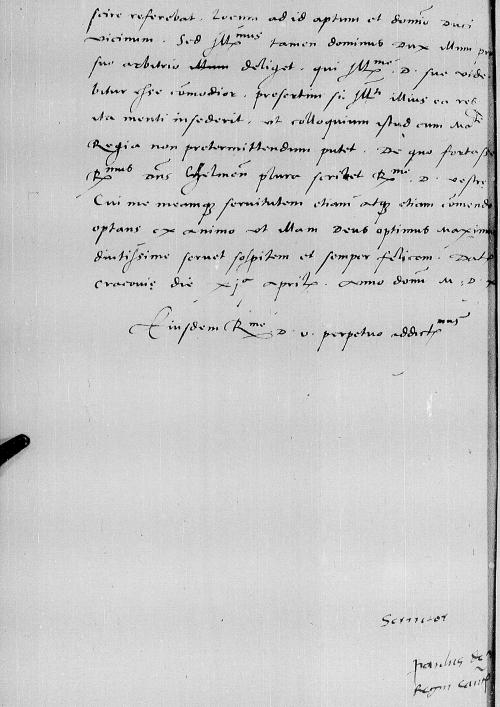 scire referebat. Locum ad id aptum et domīo Duci
vicinum. Sed Ill^mus tamen dominus Dux illum pro
suo arbitrio illum deliget. qui Ill^me .D. sue vide
bitur esse cōmodior. presertim si Ill^ti illius ea res
ita menti insederit. ut colloquium istud cum Ma^te
Regia non pretermittendum putet. De quo fortasse
R^mus dn̄s Chelmen̄ plura scribet R^me .D. vestre
Cui me meamq servitutem etiam atq etiam cōmendo
optans ex animo ut illam Deus optimus Maximus
diutissime servet sospitem et semper felicem. Dat
Cracovie die xj^a April. Anno domī M.D.
Eiusdem R^me .D. v. perpetuo addict^mus
Servitor
paulus de
Regni